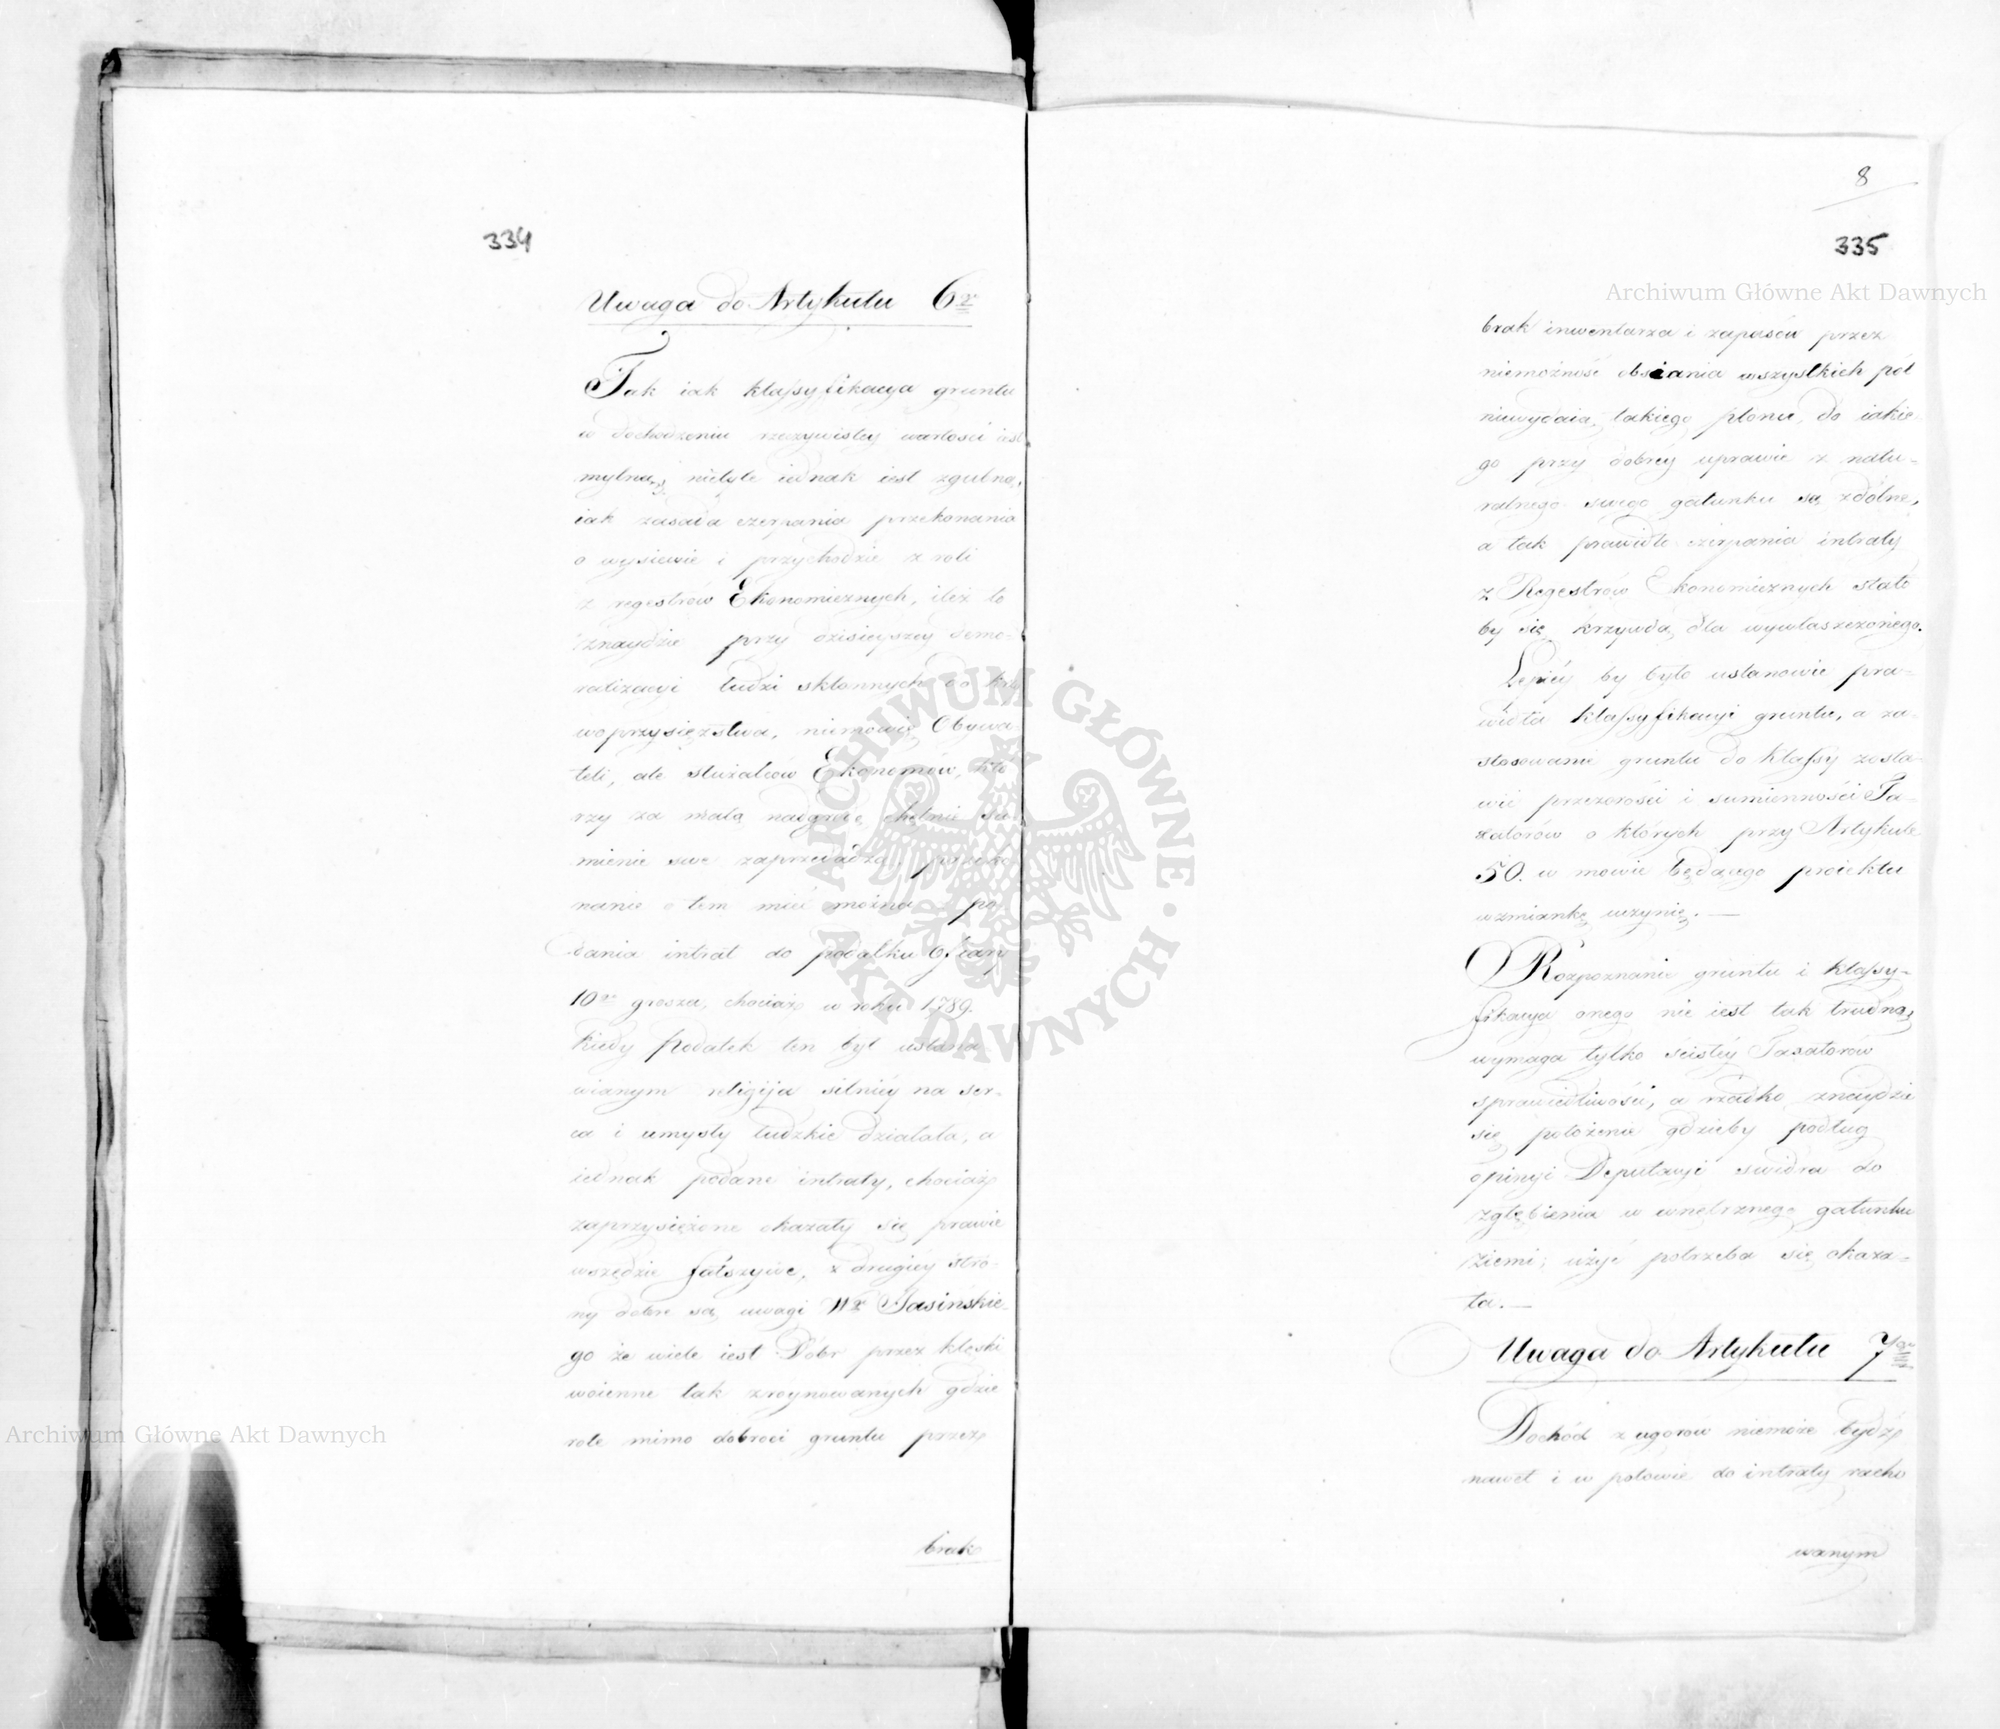 334
Uwaga do Artykułu 6go
Tak iak klassyfikacya gruntu
w dochodzeniu rzeczywistey wartości iest
mylną, nietyle iednak iest zgubną,
iak zasada czerpania przekonania
o wysiewie i przychodzie z roli
z regestrów Ekonomicznych, ileż to
znaydzie przy dzisieyszey demo-
ralizacyi ludzi skłonnych do krzy
woprzysięzstwa, niemówię Obywa-
teli, ale służalców Ekonomów, któ
rzy za małą nadgrodę chętnie su
mienie swe zaprzedadzą, przeko
nanie o tem mieć można z po
dania intrat do podatku Ofiary
10go grosza, chociaż w roku 1789.
kiedy podatek ten był ustana-
wianym religija silniéy na ser-
ca i umysły ludzkie działała, a
iednak podane intraty, chociaż
zaprzysiężone okazały się prawie
wszędzie fałszywe, z drugiéy stro-
ny dobre są uwagi Wgo Jasińskie-
go że wiele iest Dóbr przez klęski
woienne tak zruynowanych gdzie
role mimo dobroci gruntu przez
brak
8
335
Archiwum Główne Akt Dawnych
brak inwentarza i zapasów przez
niemożność obsiania wszystkich pól
niewydaią takiego plonu, do iakie-
go przy dobrey uprawie z natu-
ralnego swego gatunku są zdolne,
a tak prawidło czerpania intraty
z Regestrów Ekonomicznych stało
by się krzywdą dla wywłaszczonego.
Lepiéy by było ustanowić pra-
widła klassyfikacyi gruntu, a za-
stosowanie gruntu do klassy zosta-
wić przezorości i sumienności Ta-
xatorów o których przy Artykule
50. w mowie będącego proiektu
wzmiankę uczynię. —
Rozpoznanie gruntu i klassy-
fikacya onego nie iest tak trudną,
wymaga tylko ścisłéy Taxatorów
sprawiedliwości, a rzadko znaydzie
się położenie gdzieby podług
opinyi Deputacyi świdra do
zgłębienia wewnętrznego gatunku
ziemi, użyć potrzeba się okaza-
ła. —
Uwaga do Artykułu 7go
Dochód z ugorów niemoże bydź
nawet i w połowie do intraty racho
wanym
ARCHIWUM GŁÓWNE · AKT DAWNYCH ·
Archiwum Główne Akt Dawnych